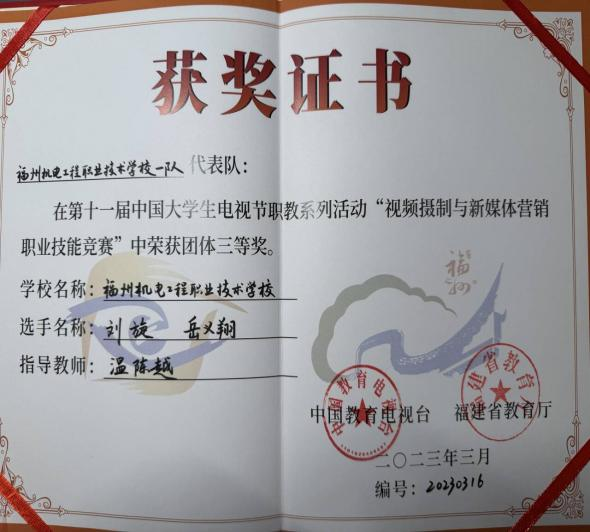 获奖证书
福州机电工程职业技术学校一队 代表队:
在第十一届中国大学生电视节职教系列活动“视频摄制与新媒体营销
职业技能竞赛”中荣获团体三等奖。
学校名称: 福州机电工程职业技术学校
选手名称: 刘旋 岳义翔
指导教师: 温陈越
福州
中国教育电视台 福建省教育厅
中国教育电视台
福建省教育厅
二〇二三年三月
编号: 20230316